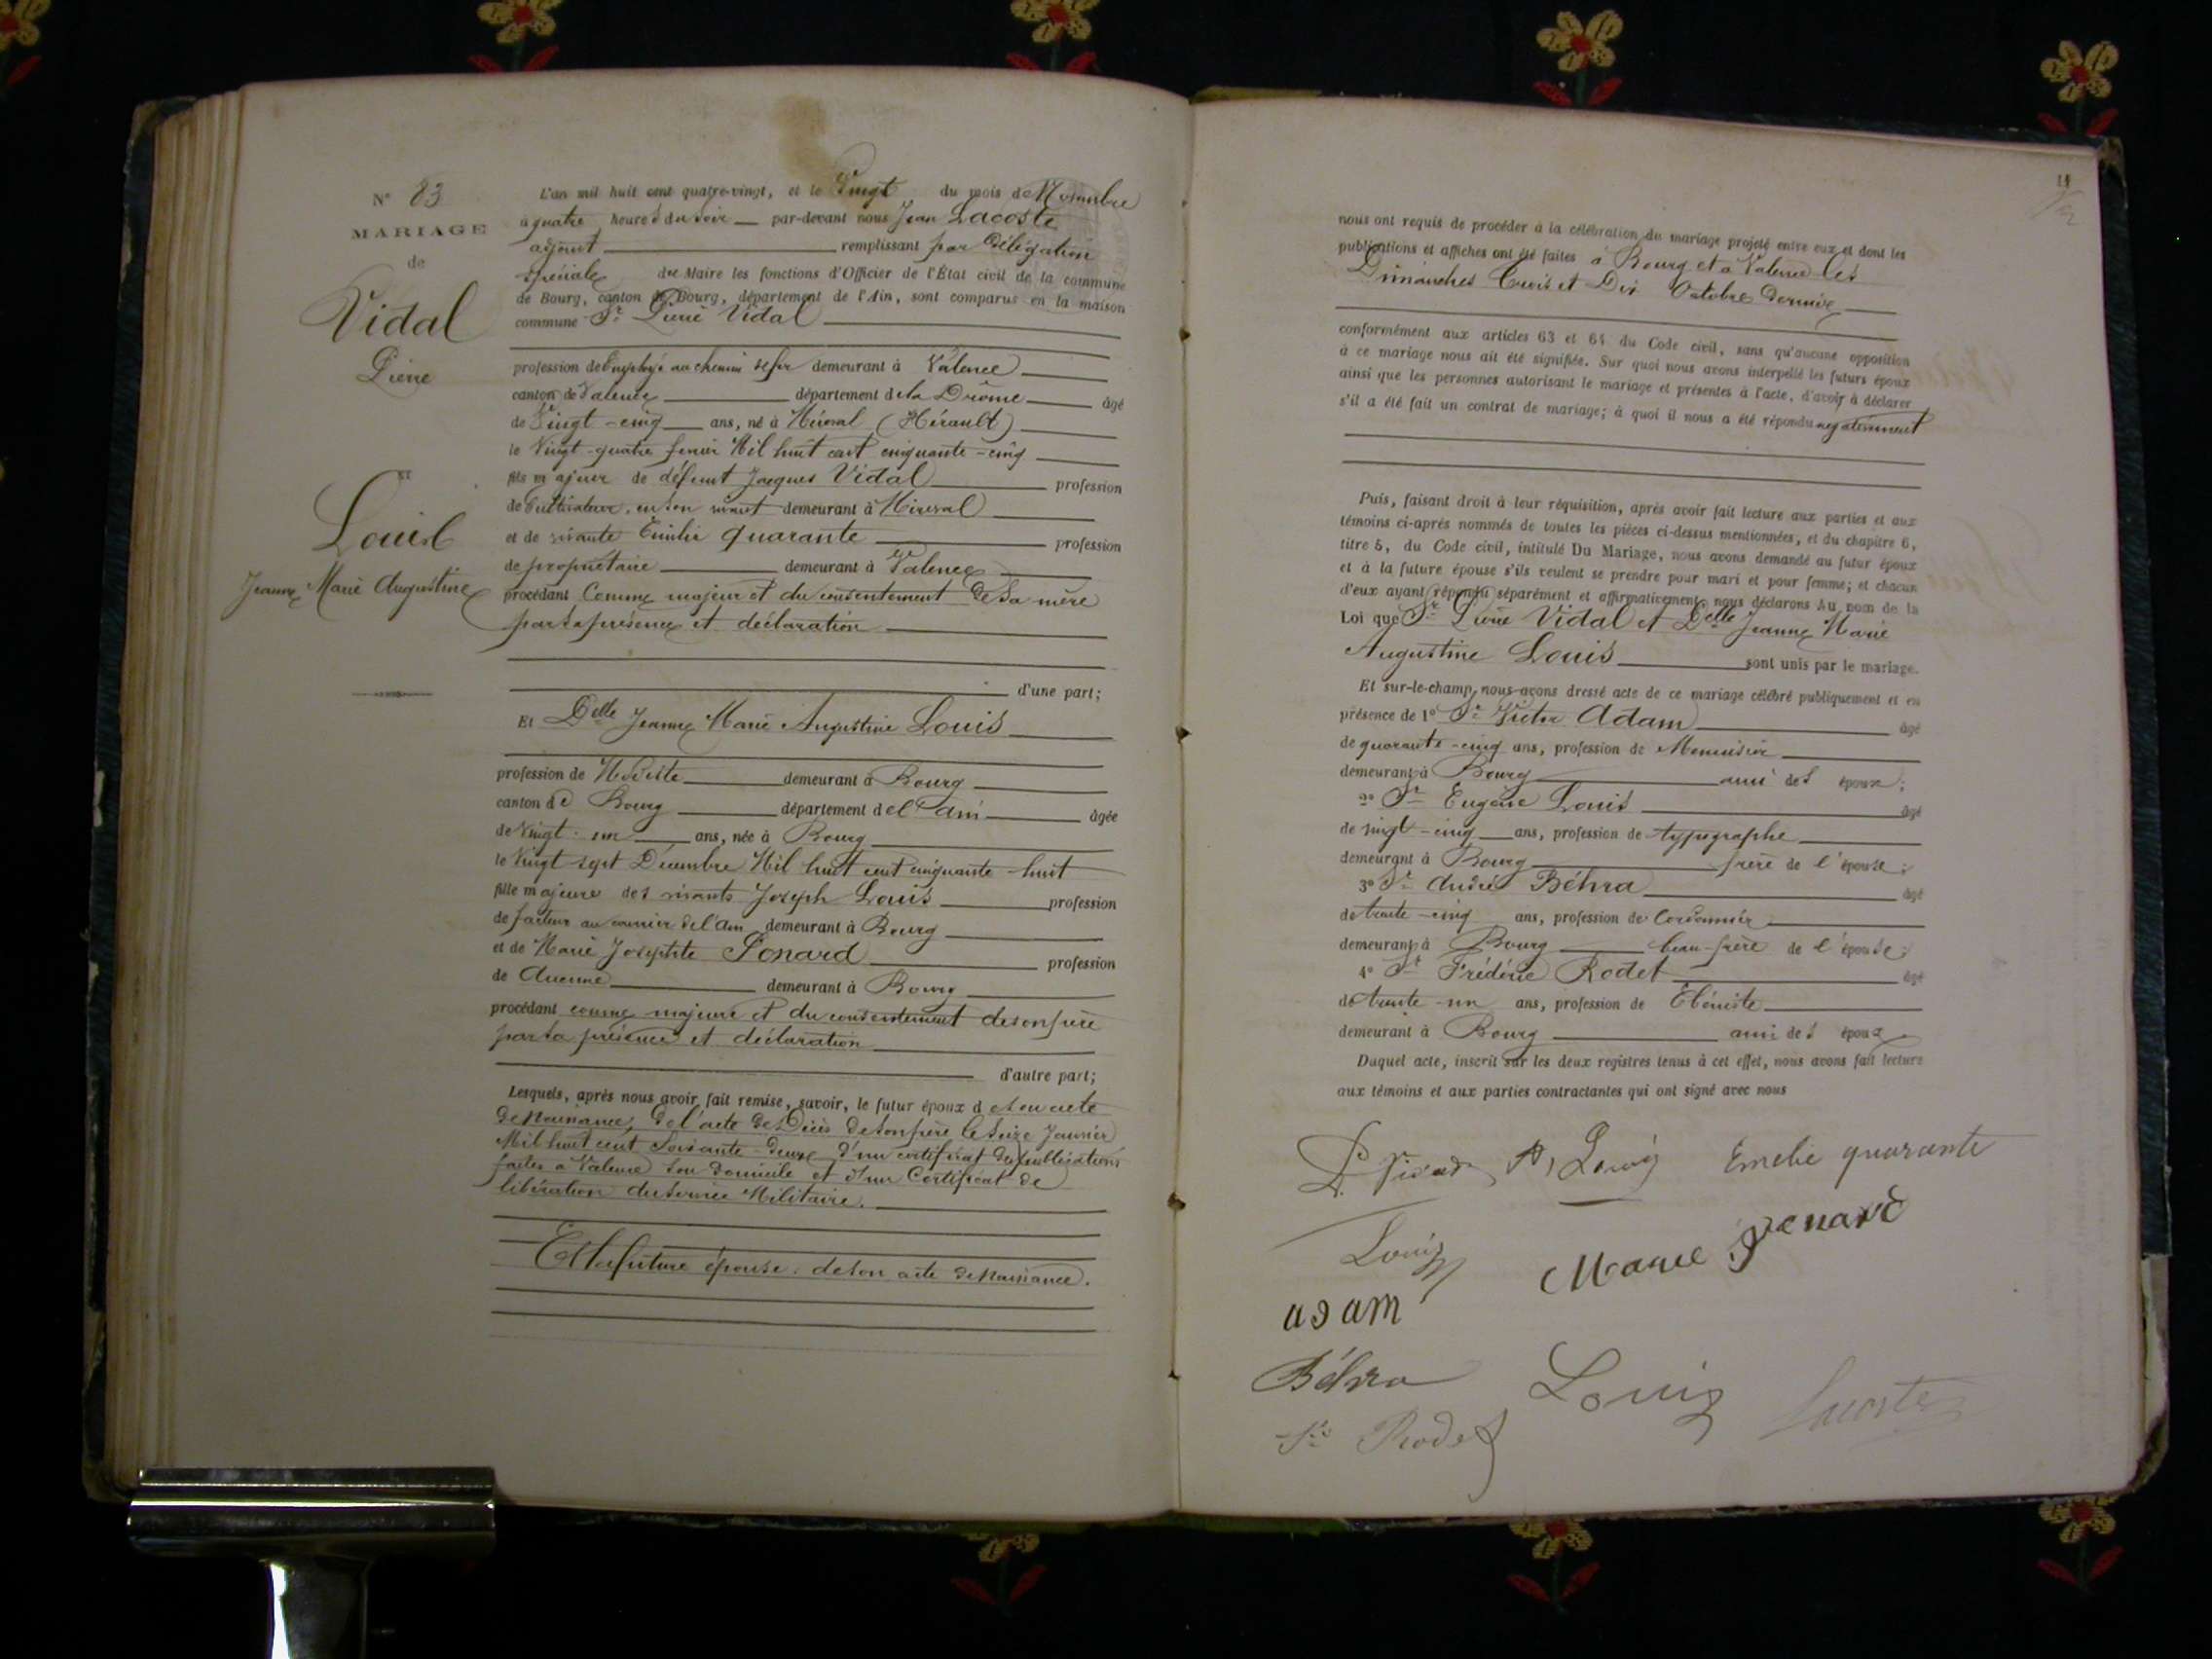 N° 83
MARIAGE
de
Vidal
Pierre
ET
Louis
Jeanne Marie Augustine
L'an mil huit cent quatre-vingt, et le Vingt du mois de Novembre
à quatre heures du soir par-devant nous Jean Lacoste
adjoint remplissant par délégation
spéciale du Maire les fonctions d'Officier de l'État civil de la commune
de Bourg, canton de Bourg, département de l'Ain, sont comparus en la maison
commune Sr Pierre Vidal
profession de Employé au chemin de fer demeurant à Valence
canton de Valence département de la Drôme âgé
de Vingt-cinq ans, né à Miréval (Hérault)
le Vingt-quatre février Mil huit cent cinquante-cinq
fils majeur de défunt Jacques Vidal profession
de Cultivateur, en son vivant demeurant à Mireval
et de vivante Emilie quarante profession
de propriétaire demeurant à Valence
procédant Comme majeur et du consentement de sa mère
par sa présence et déclaration
d'une part;
Et Delle Jeanne Marie Augustine Louis
profession de Modiste demeurant à Bourg
canton de Bourg département de l'Ain âgée
de Vingt-un ans, née à Bourg
le Vingt sept Décembre Mil huit cent cinquante-huit
fille majeure des vivants Joseph Louis profession
de facteur au courrier de l'Ain demeurant à Bourg
et de Marie Josephte Ponard profession
de Aucune demeurant à Bourg
procédant comme majeure et du consentement de son père
par sa présence et déclaration
d'autre part;
Lesquels, après nous avoir fait remise, savoir, le futur époux de son acte
de Naissance, de l'acte de Décès de son père le seize Janvier
Mil huit cent Soixante-deux d'un certificat de publications
faites à Valence son domicile et d'un Certificat de
libération du service Militaire.
Et la future épouse: de son acte de Naissance.
11
nous ont requis de procéder à la célébration du mariage projeté entre eux et dont les
publications et affiches ont été faites à Bourg et à Valence les
Dimanches Trois et Dix Octobre dernier
conformément aux articles 63 et 64 du Code civil, sans qu'aucune opposition
à ce mariage nous ait été signifiée. Sur quoi nous avons interpellé les futurs époux
ainsi que les personnes autorisant le mariage et présentes à l'acte, d'avoir à déclarer
s'il a été fait un contrat de mariage; à quoi il nous a été répondu négativement
Puis, faisant droit à leur réquisition, après avoir fait lecture aux parties et aux
témoins ci-après nommés de toutes les pièces ci-dessus mentionnées, et du chapitre 6,
titre 5, du Code civil, intitulé Du Mariage, nous avons demandé au futur époux
et à la future épouse s'ils veulent se prendre pour mari et pour femme; et chacun
d'eux ayant répondu séparément et affirmativement, nous déclarons au nom de la
Loi que Sr Pierre Vidal et Delle Jeanne Marie
Augustine Louis sont unis par le mariage.
Et sur-le-champ, nous avons dressé acte de ce mariage célébré publiquement et en
présence de 1° Sr Victor Adam âgé
de quarante-cinq ans, profession de Menuisier
demeurant à Bourg ami des époux;
2° Sr Eugène Louis âgé
de vingt-cinq ans, profession de typographe
demeurant à Bourg frère de l'épouse;
3° Sr André Béhra âgé
de trente-cinq ans, profession de Cordonnier
demeurant à Bourg beau-frère de l'épouse;
4° Sr Frédéric Rodet âgé
de trente-un ans, profession de Ébéniste
demeurant à Bourg ami des époux
Duquel acte, inscrit sur les deux registres tenus à cet effet, nous avons fait lecture
aux témoins et aux parties contractantes qui ont signé avec nous
P. Vidal A, Louis Emelie quarante
Louis Marie ponard
adam
Béhra Louis Lacoste
Rodet